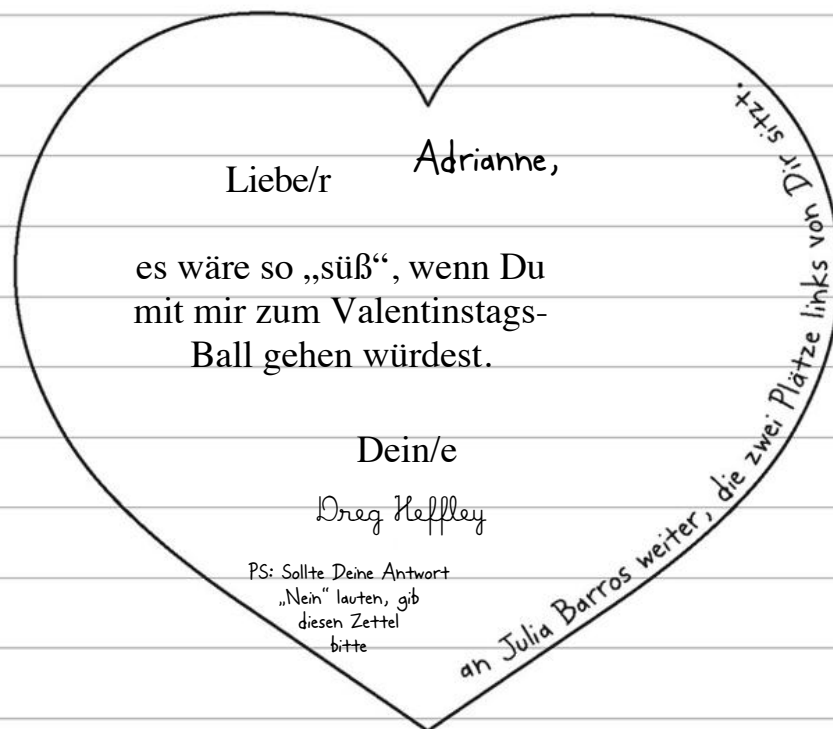 Liebe/r Adrianne,
es wäre so „süß“, wenn Du
mit mir zum Valentinstags-
Ball gehen würdest.
Dein/e
Dreg Heffley
PS: Sollte Deine Antwort
„Nein“ lauten, gib
diesen Zettel
bitte
an Julia Barros weiter, die zwei Plätze links von Dir sitzt.